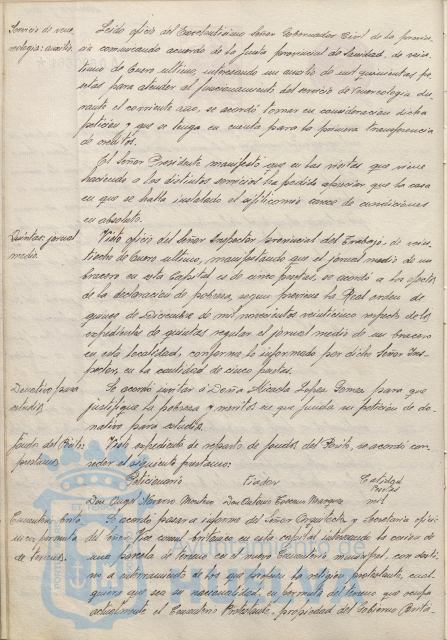 Servicio de vene-
reología: auxilio.
Leído oficio del Excelentísimo Señor Gobernador Civil de la provin-
cia comunicando acuerdo de la Junta provincial de Sanidad, de vein-
tiuno de Enero último, interesando un auxilio de mil quinientas pe-
setas para atender al funcionamiento del servicio de Venereología du-
rante el corriente año, se acordó tomar en consideración dicha
petición y que se tenga en cuenta para la primera transferencia
de créditos.
El Señor Presidente manifestó que en las visitas que viene
haciendo a los distintos servicios ha podido apreciar que la casa
en que se halla instalado el sifilicomio carece de condiciones
en absoluto.
Quintas: jornal
medio.
Visto oficio del Señor Inspector provincial del Trabajo, de vein-
tiocho de Enero último, manifestando que el jornal medio de un
bracero en esta Capital es de cinco pesetas, se acordó a los efectos
de la declaración de pobreza, según previene la Real orden de
quince de Diciembre de mil novecientos veinticinco respecto de los
expedientes de quintas regular el jornal medio de un bracero
en esta localidad, conforme lo informado por dicho Señor Ins-
pector, en la cantidad de cinco pesetas.
Donativo para
estudios
Se acordó invitar a Doña Micaela López Gómez para que
justifique la pobreza y méritos en que funda su petición de do-
nativo para estudios.
Fondos del Pósito:
prestamos
Visto expediente de reparto de fondos del Pósito, se acordó con-
ceder el siguiente prestamo:
Peticionario Fiador Cantidad
Pesetas
Don Angel Navarro Montero Don Antonio Toscano Marquez mil
Cementerio britá-
nico, permuta
de terrenos.
Se acordó pasar a informe del Señor Arquitecto y Secretaria oficio
del vice-consul británico en esta capital interesando la cesion de
una parcela de terreno en el nuevo Cementerio municipal, con desti-
no a enterramiento de los que profesen la religion protestante, cual-
quiera que sea su nacionalidad, en permuta del terreno que ocupa
actualmente el Cementerio Protestante, propiedad del Gobierno Britá-